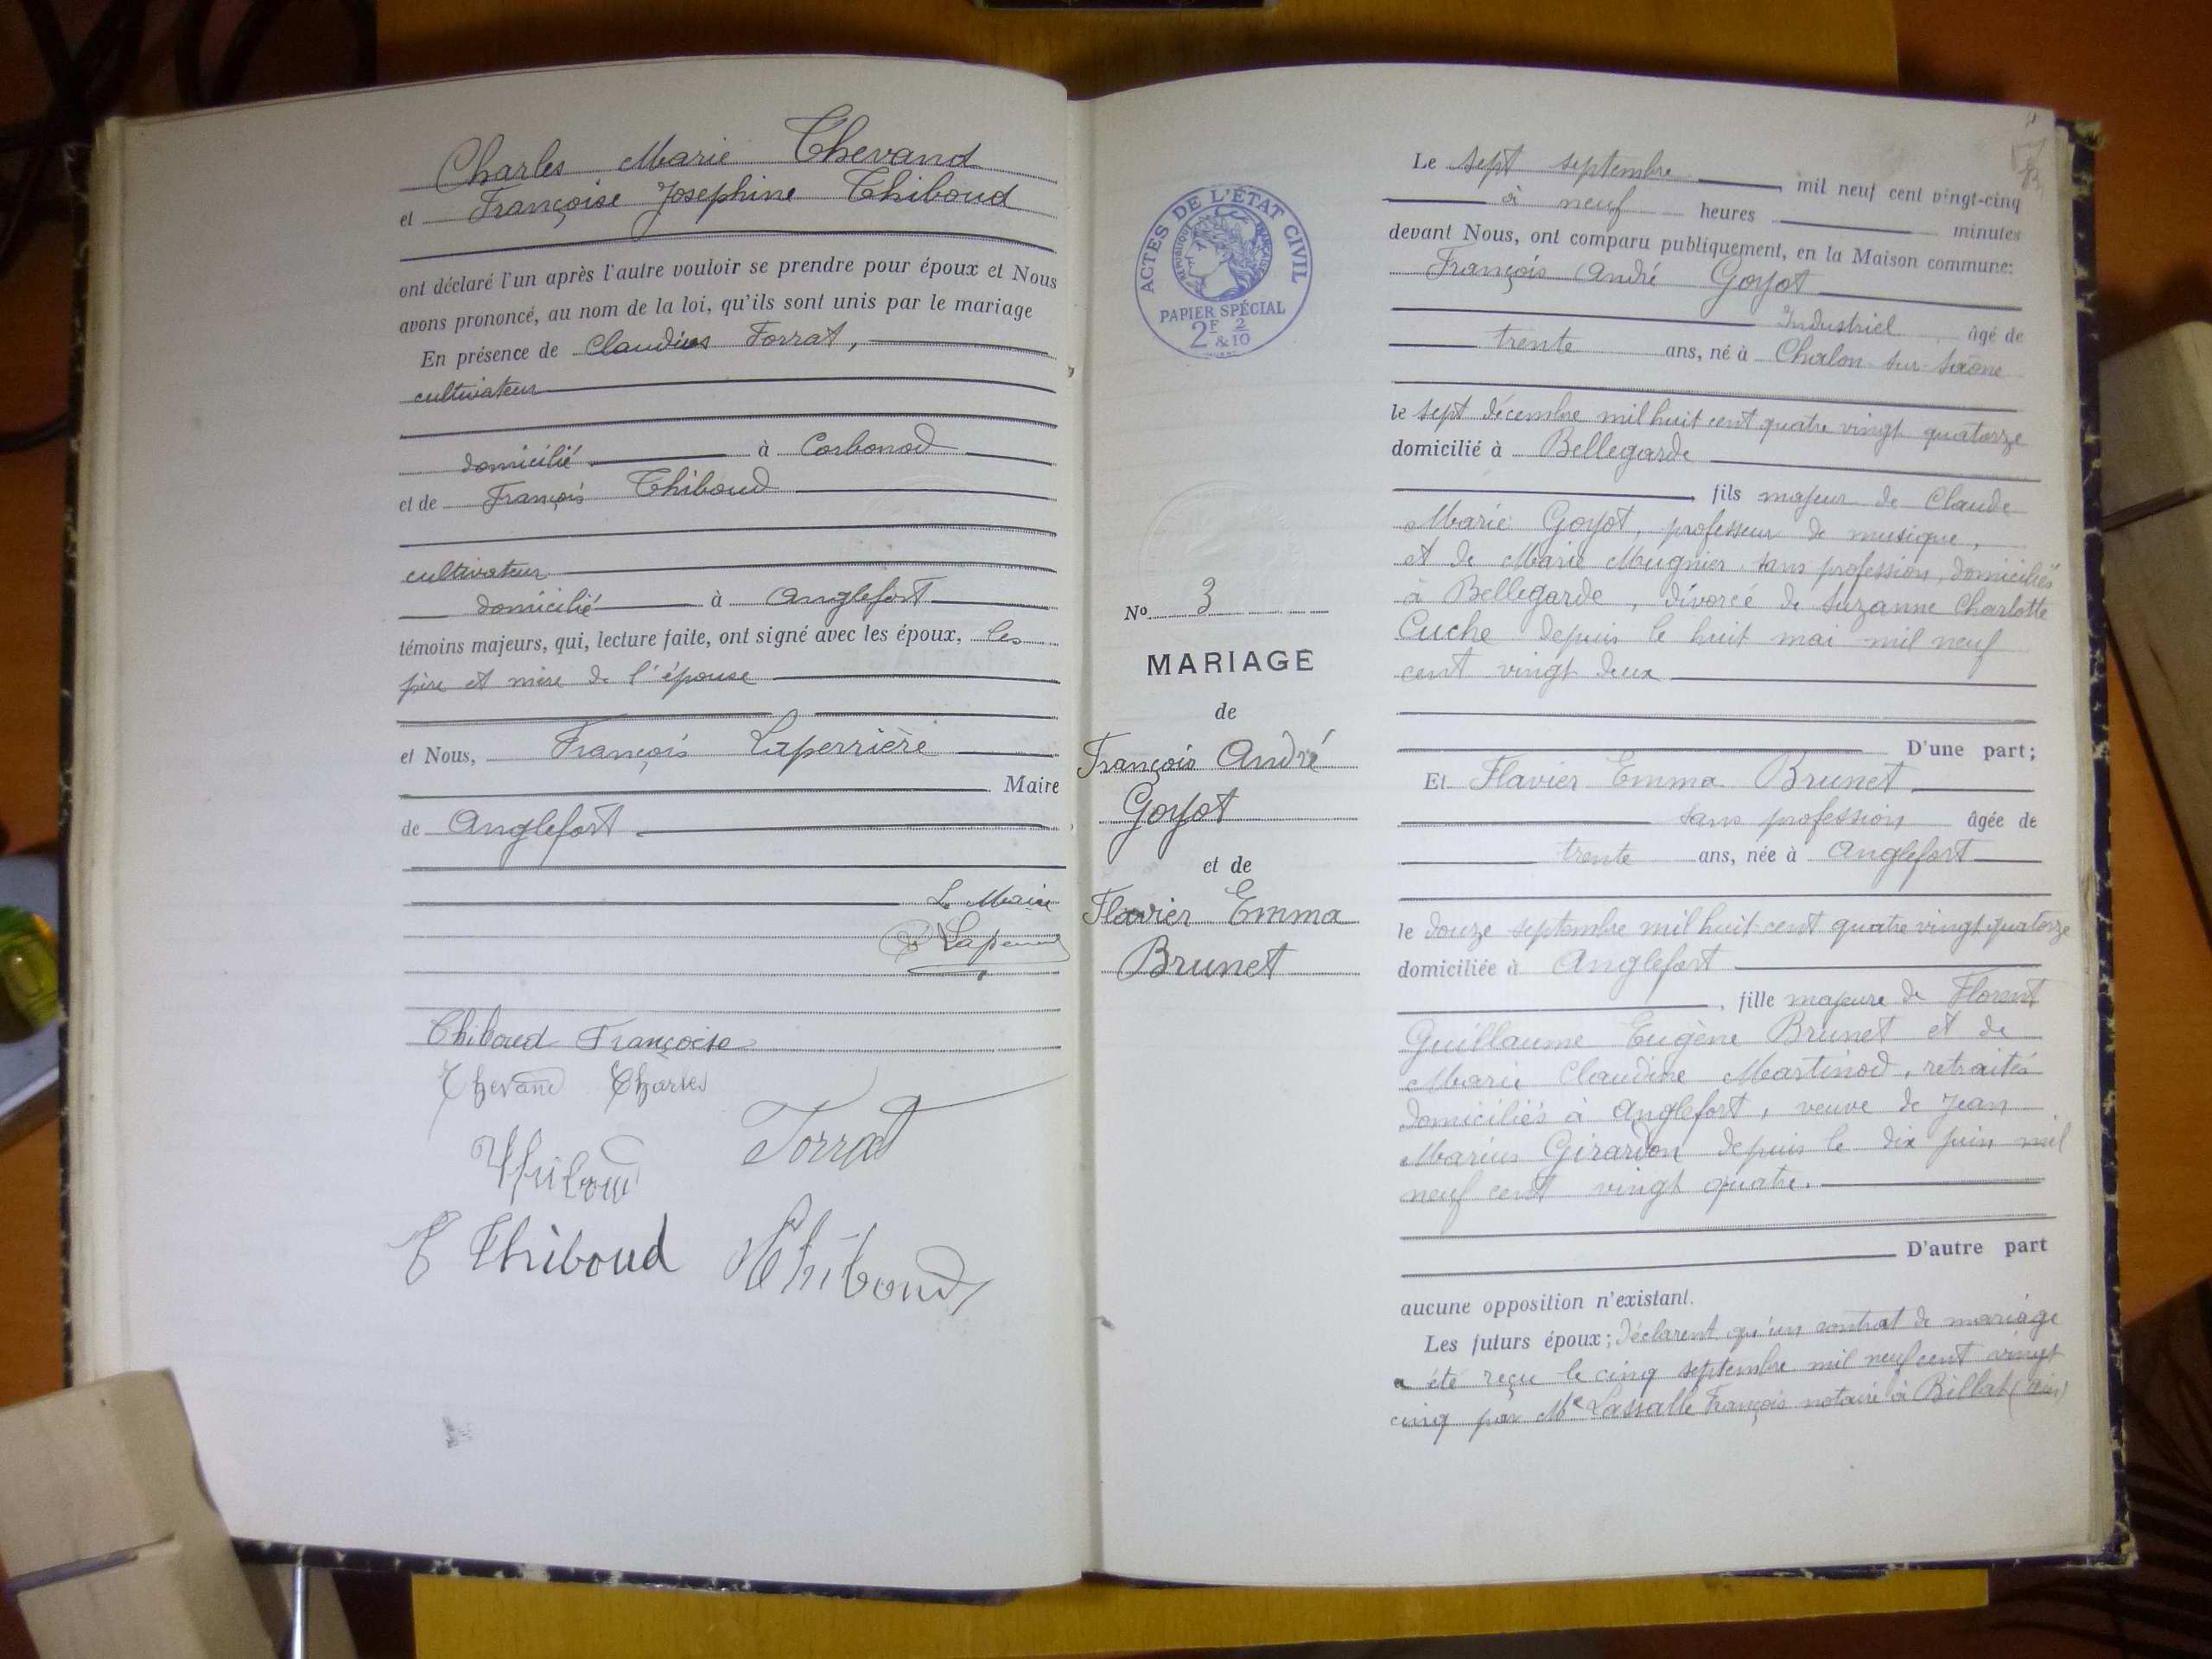 Charles Marie Chevand
et Françoise Josephine Thiboud
ont déclaré l'un après l'autre vouloir se prendre pour époux et Nous
avons prononcé, au nom de la loi, qu'ils sont unis par le mariage
En présence de Claudius Forrat,
cultivateur
domicilié à Corbonod
et de François Thiboud
cultivateur
domicilié à Anglefort
témoins majeurs, qui, lecture faite, ont signé avec les époux, les
père et mère de l'épouse
et Nous, François Laperrière
Maire
de Anglefort
Le Maire
Thiboud Françoise
Chevand Charles
Forrat
Thiboud
Thiboud
Thiboud
ACTES DE L'ÉTAT CIVIL
RÉPUBLIQUE FRANÇAISE
PAPIER SPÉCIAL
2F 2
&10
No 3
MARIAGE
de
François André
Goyot
et de
Flavier Emma
Brunet
Le sept septembre mil neuf cent vingt-cinq
à neuf heures minutes
devant Nous, ont comparu publiquement, en la Maison commune:
François André Goyot
Industriel âgé de
trente ans, né à Chalon-sur-Saône
le sept décembre mil huit cent quatre vingt quatorze
domicilié à Bellegarde
fils majeur de Claude
Marie Goyot, professeur de musique,
et de Marie Mugnier sans profession, domiciliés
à Bellegarde, divorcé de Suzanne Charlotte
Cuche depuis le huit mai mil neuf
cent vingt deux
D'une part;
Et Flavier Emma Brunet
sans profession âgée de
trente ans, née à Anglefort
le douze septembre mil huit cent quatre vingt quatorze
domiciliée à Anglefort
, fille majeure de Florent
Guillaume Eugène Brunet et de
Marie Claudine Martinod, retraités
domiciliés à Anglefort, veuve de Jean
Marius Girardon depuis le dix juin mil
neuf cent vingt quatre.
D'autre part
aucune opposition n'existant.
Les futurs époux; déclarent qu'un contrat de mariage
a été reçu le cinq septembre mil neuf cent vingt
cinq par Me Lassalle François notaire à Billiat (Ain)